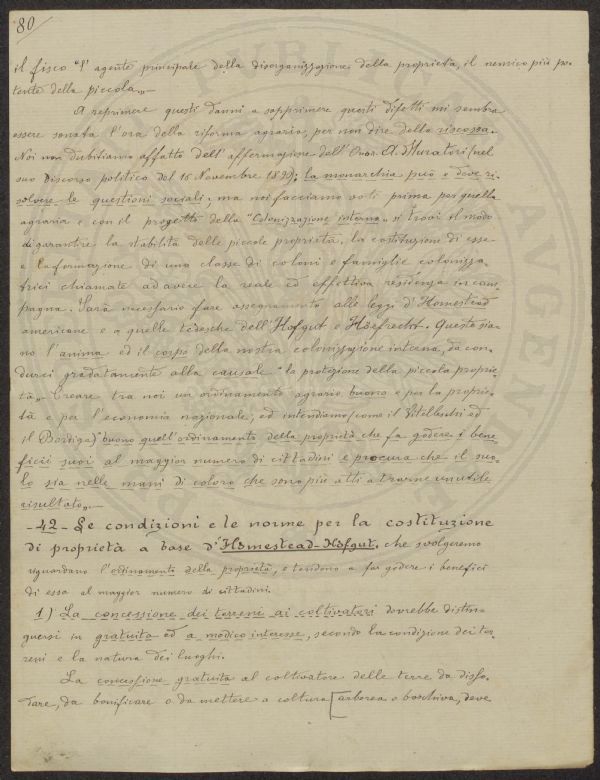 80
il fisco "l'agente principale della disorganizzazione della proprietà, il nemico più po-
tente della piccola„.
A reprimere questi danni a sopprimere questi difetti mi sembra
essere sonata l'ora della riforma agraria, per non dire della riscossa.
Noi non dubitiamo affatto dell'affermazione dell'Onor. A. Muratori (nel
suo Discorso politico del 16 Novembre 1899): la monarchia può e deve ri-
solvere le questioni sociali, ma noi facciamo voti prima per quella
agraria e con il progetto della "Colonizzazione interna„ si trovi il modo
di garantire la stabilità delle piccole proprietà, la costituzione di esse
e la formazione di una classe di coloni e famiglie colonizza
trici chiamate ad avere la reale ed effettiva residenza in cam
pagna. Sarà necessario fare assegnamento alle leggi d'Homestead
americane e a quelle tedesche dell'Hofgut e Höferecht. Queste sia-
no l'anima ed il corpo della nostra colonizzazione interna, da con-
durci gradatamente alla causale "la protezione della piccola proprie-
tà„. Creare tra noi un ordinamento agrario buono e per la proprie-
tà e per l'economia nazionale; ed intendiamo (come il Vitelleschi ed
il Bordiga) "buono quell'ordinamento della proprietà che fa godere i bene
ficii suoi al maggior numero di cittadini e procura che il suo-
lo sia nelle mani di coloro che sono più atti a trarne un utile
risultato„.
- 42 - Le condizioni e le norme per la costituzione
di proprietà a base d'Homestead-Hofgut. che svolgeremo
riguardano l'ordinamento della proprietà, e tendono a far godere i benefici
di essa al maggior numero di cittadini.
1) La concessione dei terreni ai coltivatori dovrebbe distin-
guersi in gratuita ed a modico interesse, secondo la condizione dei ter-
reni e la natura dei luoghi.
La concessione gratuita al coltivatore delle terre da disso-
dare, da bonificare o da mettere a coltura [arborea o boschiva, deve